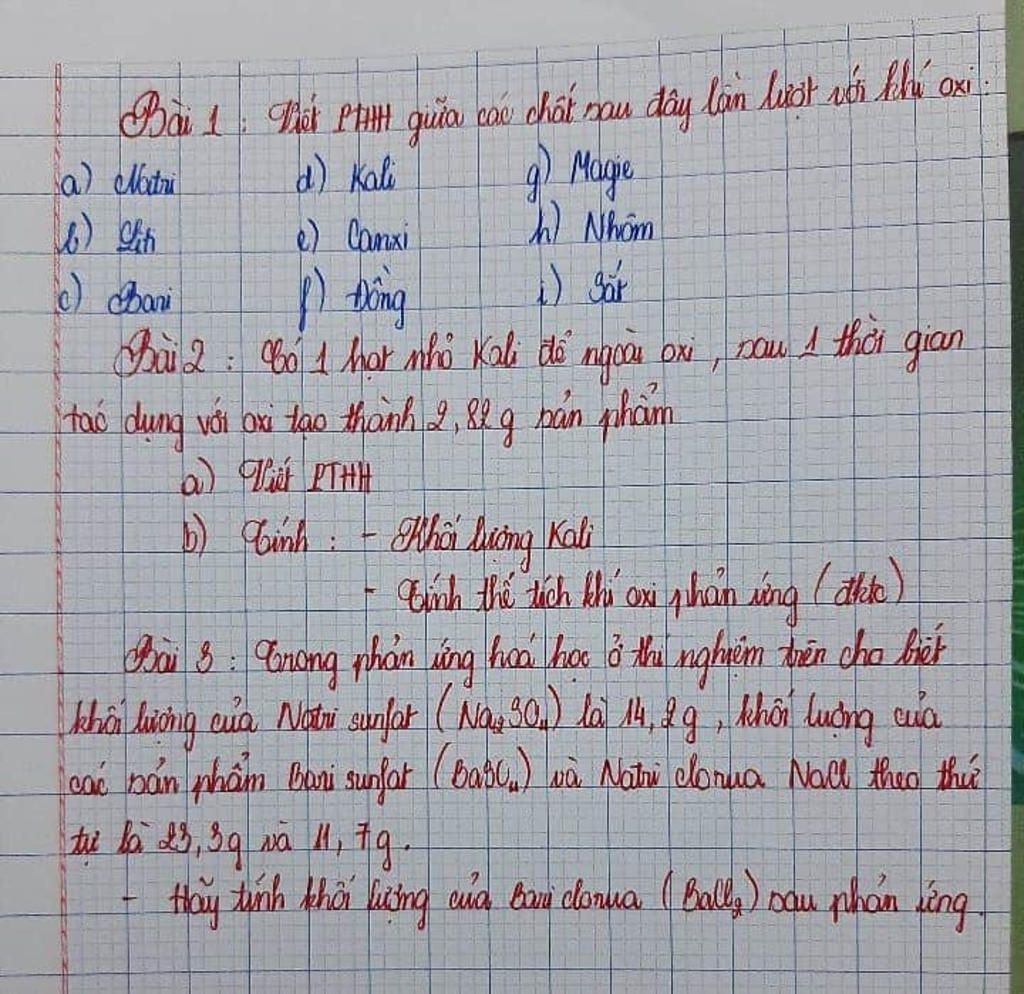 Bài 1 : Viết PTHH giữa các chất sau đây lần lượt với khí oxi.
a) Natri d) Kali g) Magie
b) Liti e) Canxi h) Nhôm
c) Bari f) Đồng i) Sắt
Bài 2 : Có 1 hạt nhỏ Kali để ngoài oxi, sau 1 thời gian
tác dụng với oxi tạo thành 2,82g sản phẩm
a) Viết PTHH
b) Tính : - Khối lượng Kali
- Tính thể tích khí oxi phản ứng (đktc)
Bài 3 : Trong phản ứng hoá học ở thí nghiệm trên cho biết
khối lượng của Natri sunfat (Na₂SO₄) là 14,2g, khối lượng của
các sản phẩm Bari sunfat (BaSO₄) và Natri clorua NaCl theo thứ
tự là 23,3g và 11,7g.
- Hãy tính khối lượng của Bari clorua (BaCl₂) sau phản ứng.